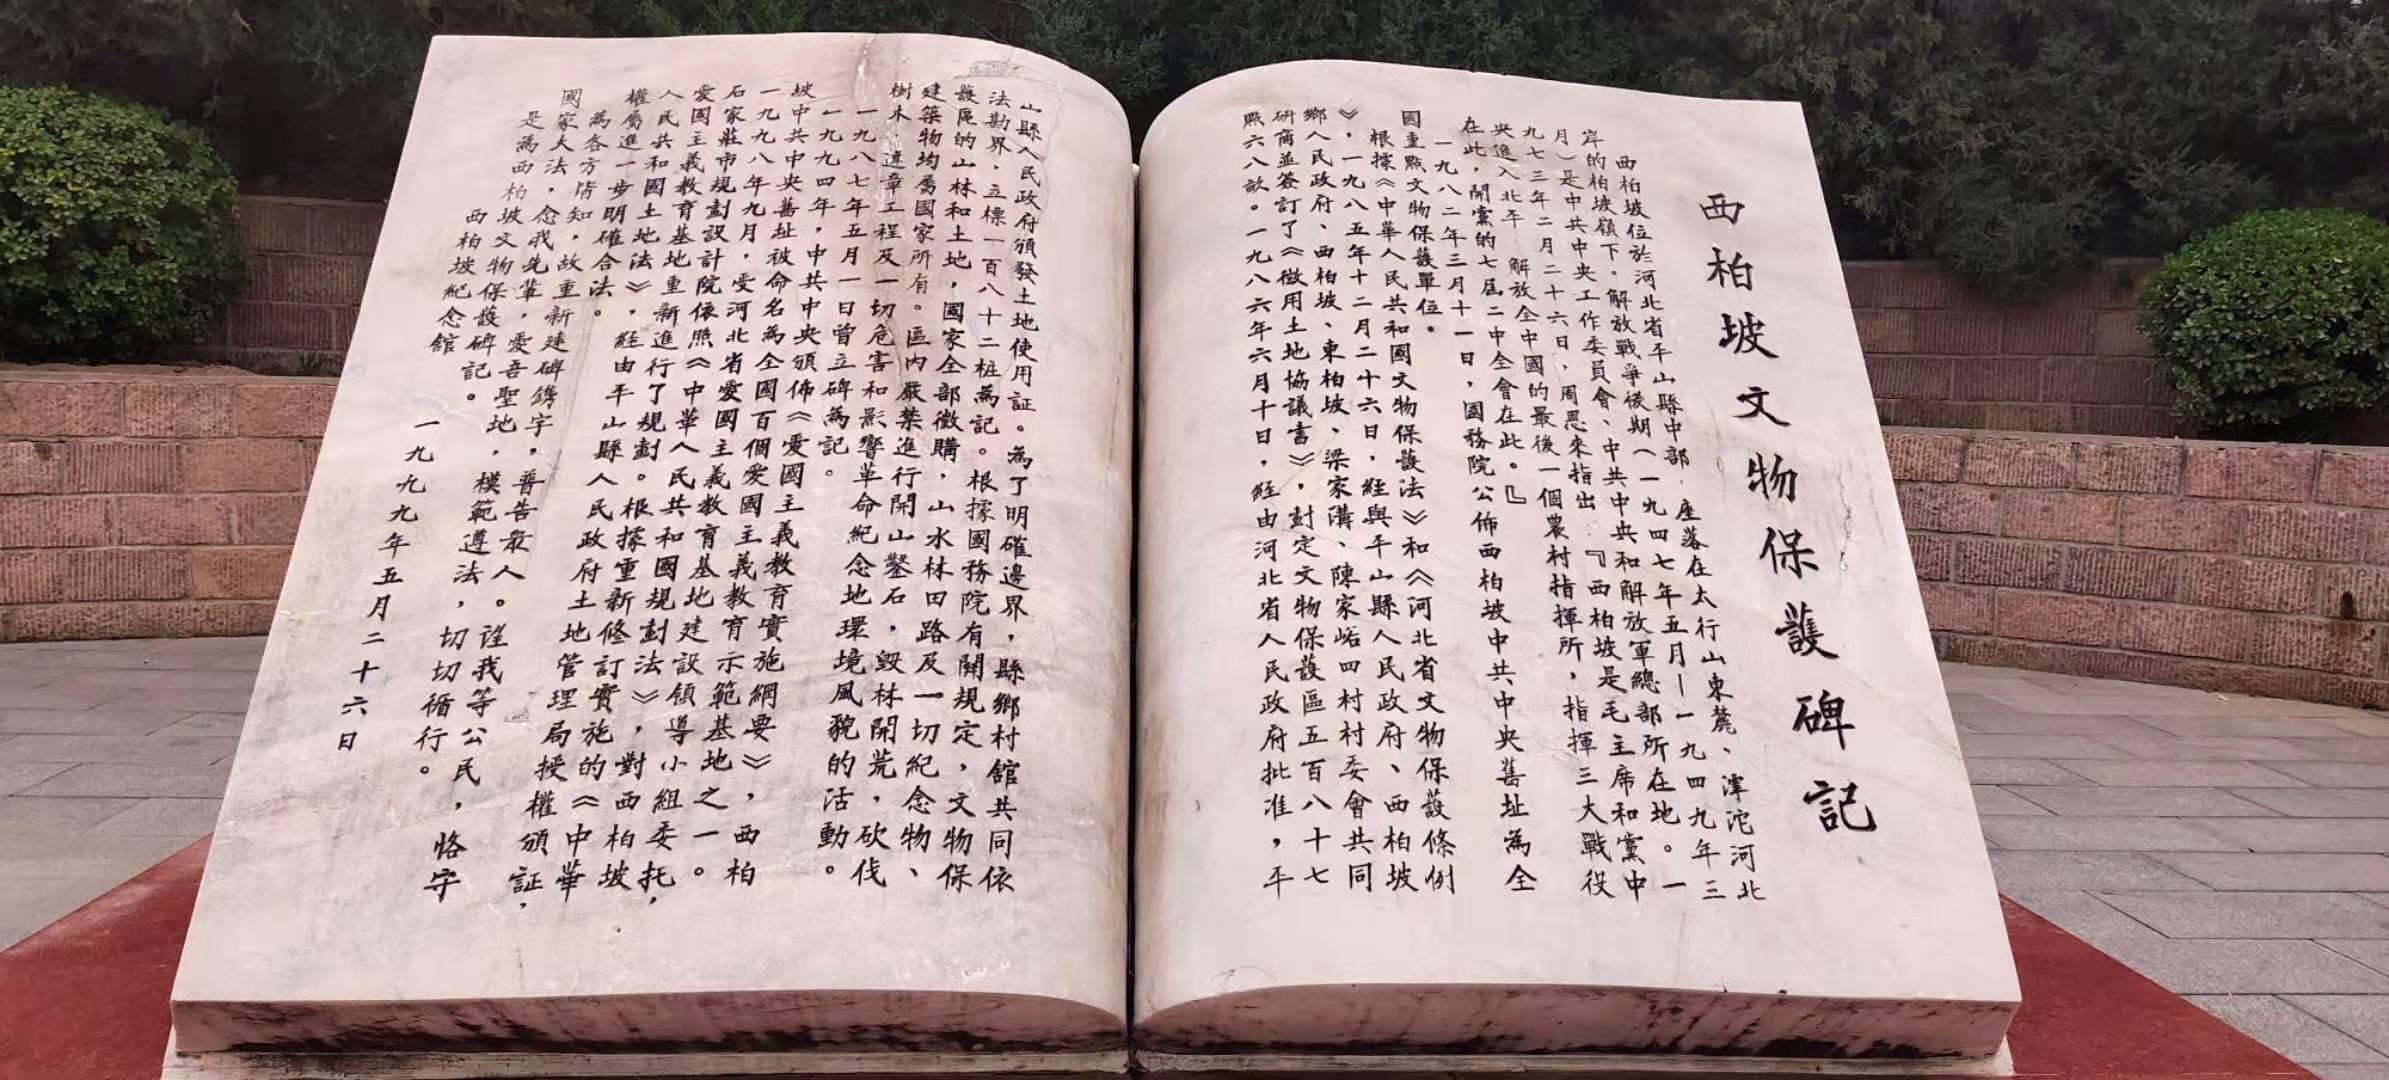 西柏坡文物保護碑記
西柏坡位於河北省平山縣中部，座落在太行山東麓、滹沱河北
岸的柏坡嶺下。解放戰爭後期（一九四七年五月—一九四九年三
月）是中共中央工作委員會、中共中央和解放軍總部所在地。一
九七三年二月二十六日，周恩來指出：『西柏坡是毛主席和黨中
央進入北平，解放全中國的最後一個農村指揮所，指揮三大戰役
在此，開黨的七屆二中全會在此。』
一九八二年三月十一日，國務院公佈西柏坡中共中央舊址為全
國重點文物保護單位。
根據《中華人民共和國文物保護法》和《河北省文物保護條例
》，一九八五年十二月二十六日，經與平山縣人民政府、西柏坡
鄉人民政府、西柏坡、東柏坡、梁家溝、陳家峪四村村委會共同
研商並簽訂了《徵用土地協議書》，劃定文物保護區五百八十七
點六八畝。一九八六年六月十日，經由河北省人民政府批准，平
山縣人民政府頒發土地使用証。為了明確邊界，縣鄉村舘共同依
法勘界，立標一百八十二桩為記。根據國務院有關規定，文物保
護區的山林和土地，國家全部徵購，山水林田路及一切紀念物、
建築物均屬國家所有。區内嚴禁進行開山鑿石，毀林開荒，砍伐
樹木，違章工程及一切危害和影響革命紀念地環境風貌的活動。
一九八七年五月一日曾立碑為記。
一九九四年，中共中央頒佈《愛國主義教育實施綱要》，西柏
坡中共中央舊址被命名為全國百個愛國主義教育示範基地之一。
一九九八年九月，受河北省愛國主義教育基地建設領導小組委托，
石家莊市規劃設計院依照《中華人民共和國規劃法》，對西柏坡
愛國主義教育基地重新進行了規劃。根據重新修訂實施的《中華
人民共和國土地法》，經由平山縣人民政府土地管理局授權頒証，
權屬進一步明確合法。
為各方皆知，故重新建碑鐫字，普告眾人。望我等公民，恪守
國家大法，念我先輩，愛吾聖地，模範遵法，切切循行。
是為西柏坡文物保護碑記。
西柏坡紀念舘
一九九九年五月二十六日